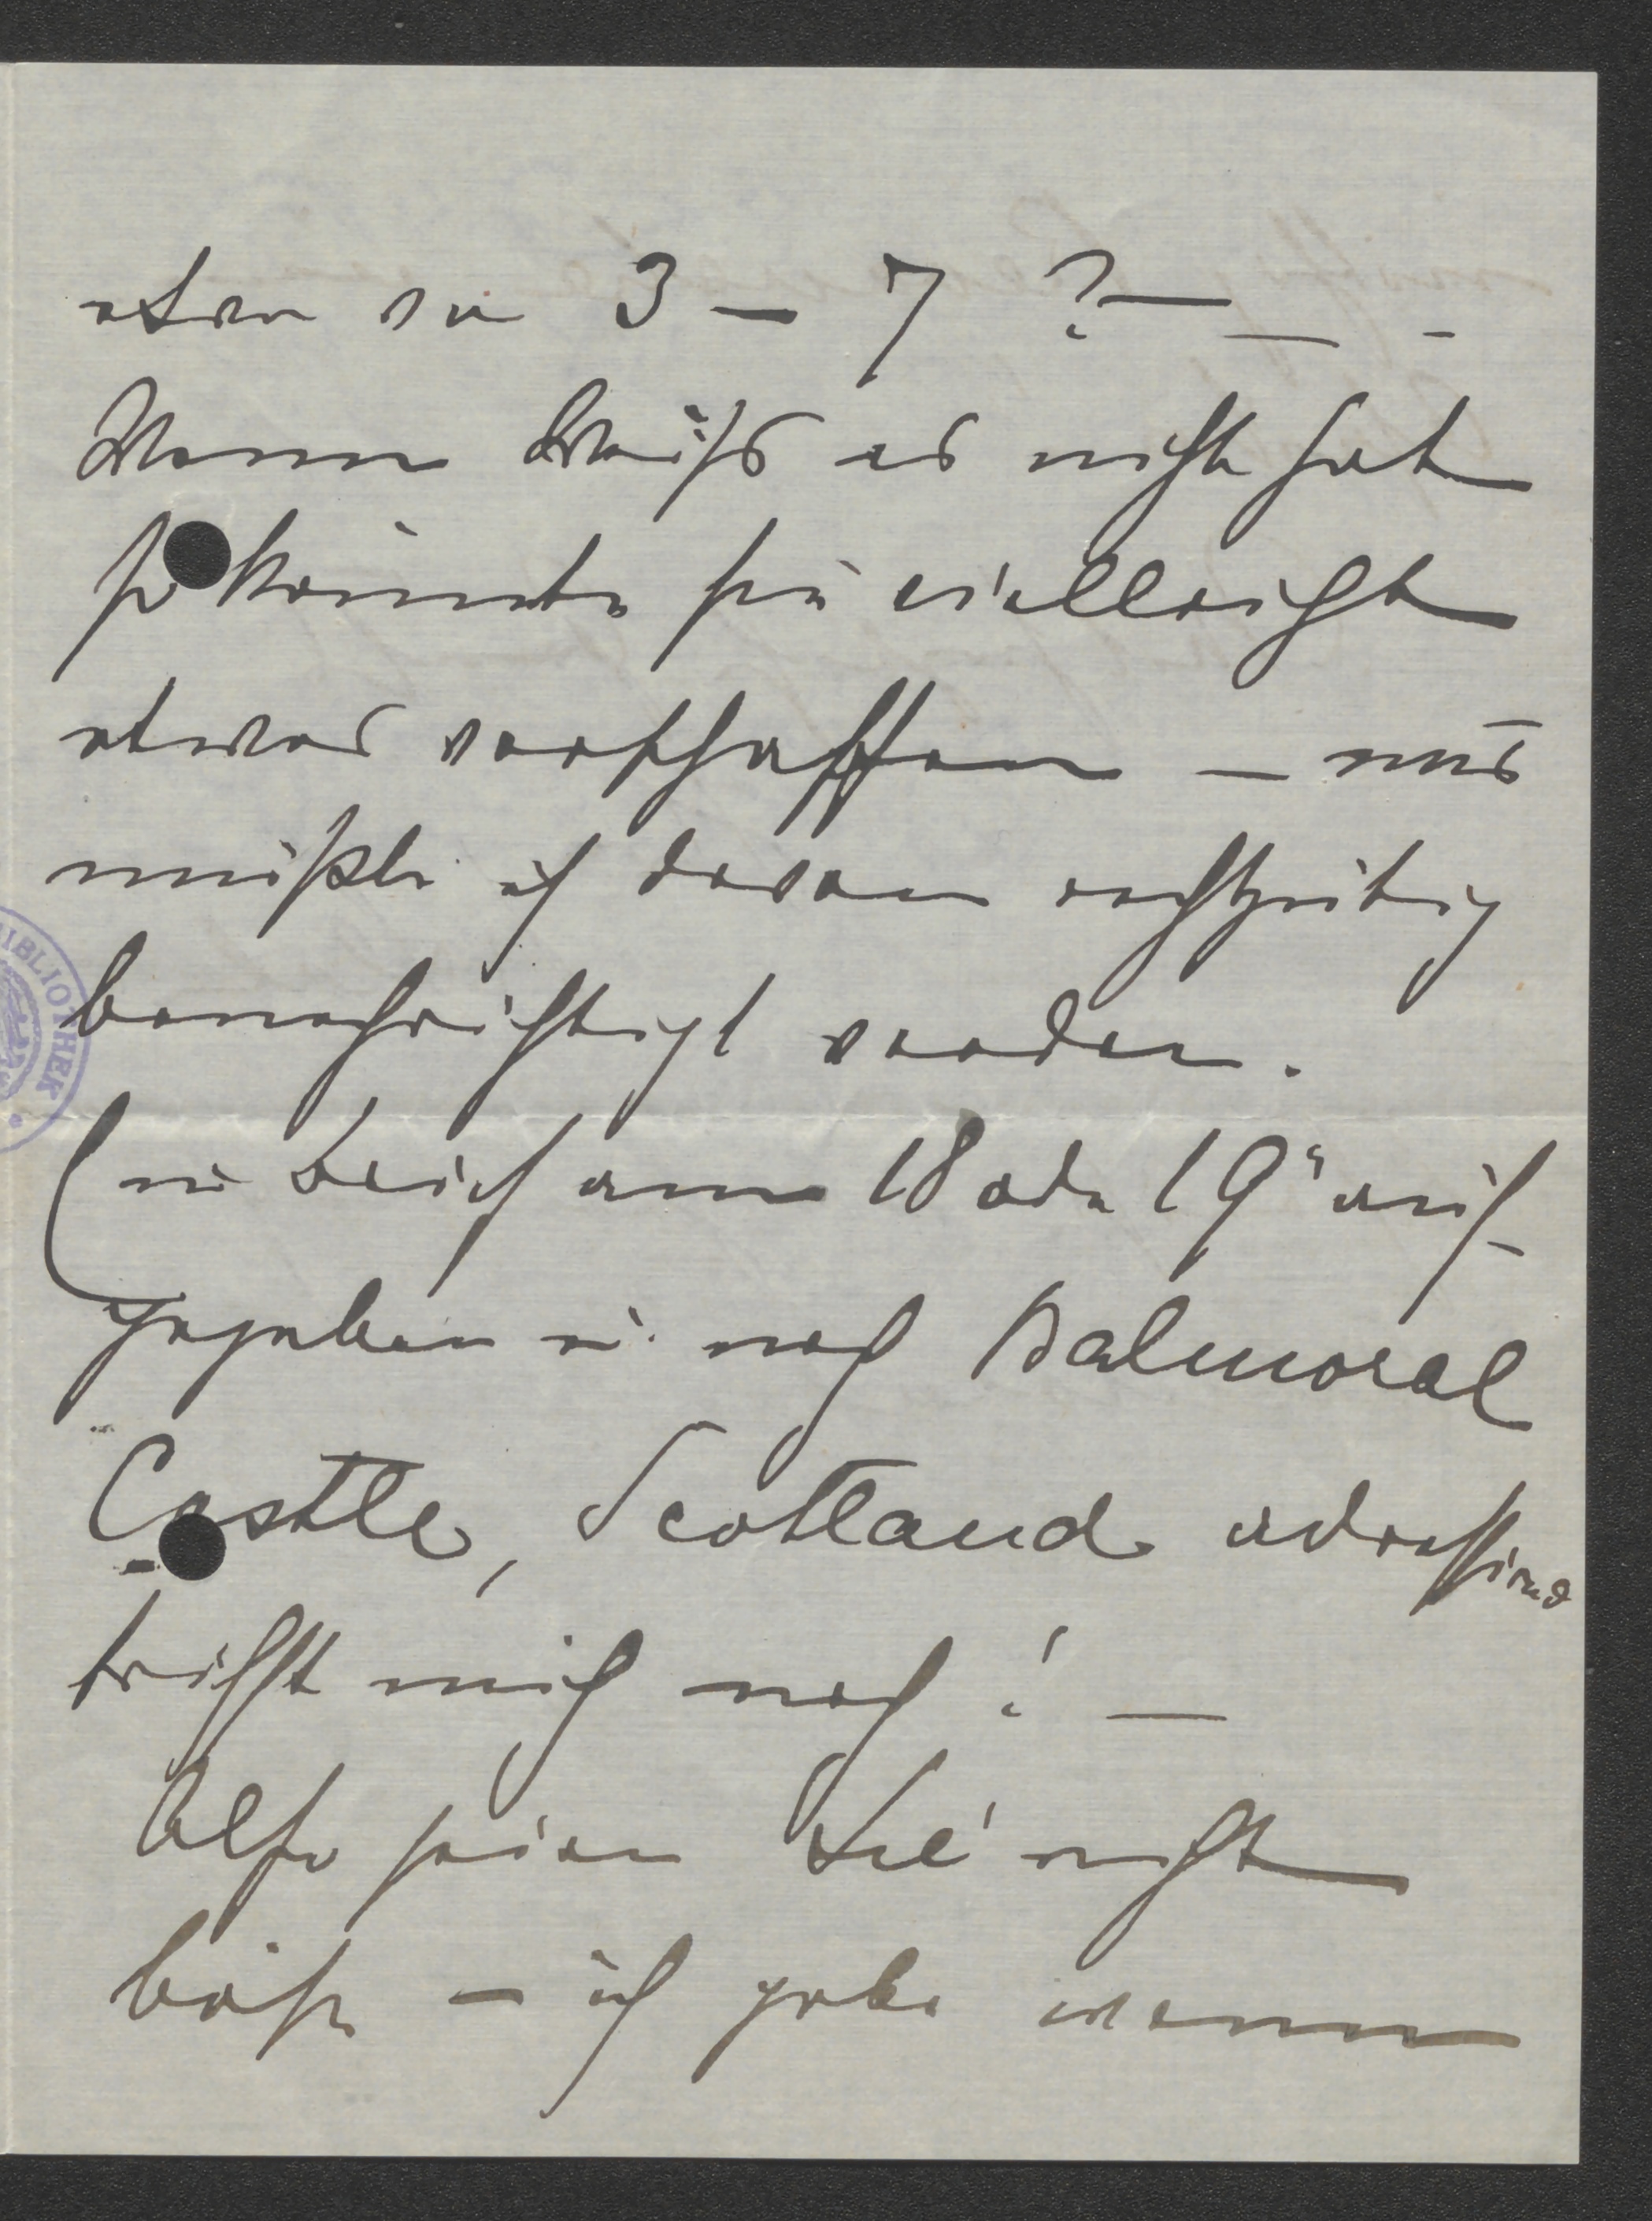 etwa so 3 – 7 ? — – -
Wenn Weiß es nicht hat
so könnte sie vielleicht
etwas verschaffen – nur
müßte ich davon rechtzeitig
benachrichtigt werden.
(ein Brief am 18 oder 19" auf-
gegeben u. nach Balmoral
Castle, Scotland adressirend
trifft mich noch! —
Also seien Sie nicht
böse – ich gebe wenn
BIBLIOTHEK